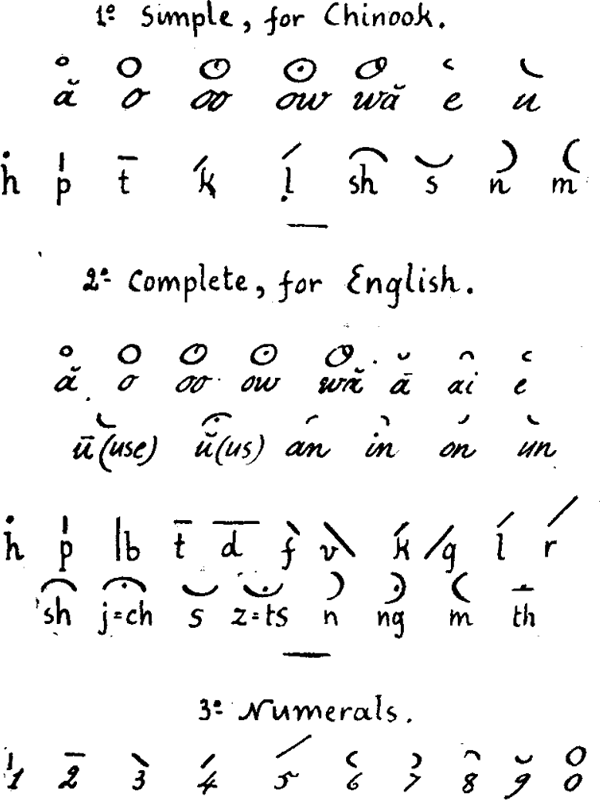 1º Simple, for Chinook.
ă o oo ow wă e u
h p t k l sh s n m
2º Complete, for English.
ă o oo ow wă ā ai e
ū (use) ŭ (us) an in on un
h p b t d f v k g l r
sh j=ch s z=ts n ng m th
3º Numerals.
1 2 3 4 5 6 7 8 9 0